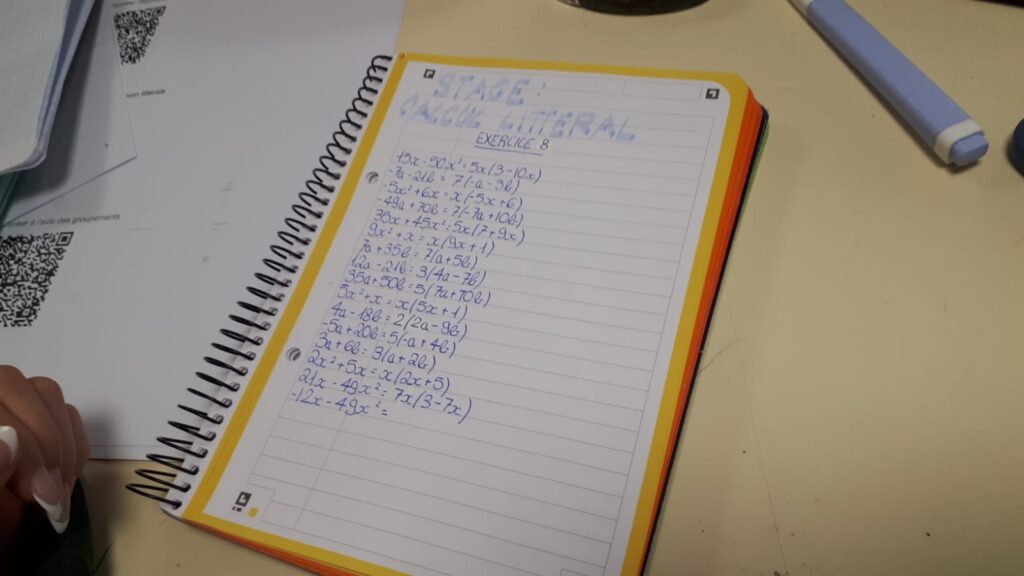 STAGE :
CALCUL LITTERAL
EXERCICE 8
15x - 50x² = 5x(3-10x)
-7a - 21b = 7(-a - 3b)
-5x² + 6x = x(-5x + 6)
-49a + 70b = 7(-7a + 10b)
35x + 45x² = 5x(7 + 9x)
9x² + x = x(9x + 1)
7a + 35b = 7(a + 5b)
12a - 21b = 3(4a - 7b)
35a + 50b = 5(7a + 10b)
5x² + x = x(5x + 1)
4a - 18b = 2(2a - 9b)
-5a + 20b = 5(-a + 4b)
3a + 6b = 3(a + 2b)
2x² + 5x = x(2x + 5)
21x - 49x² = 7x(3 - 7x)
-12x - 49x² =
ion littérale
à l'aide des groupements